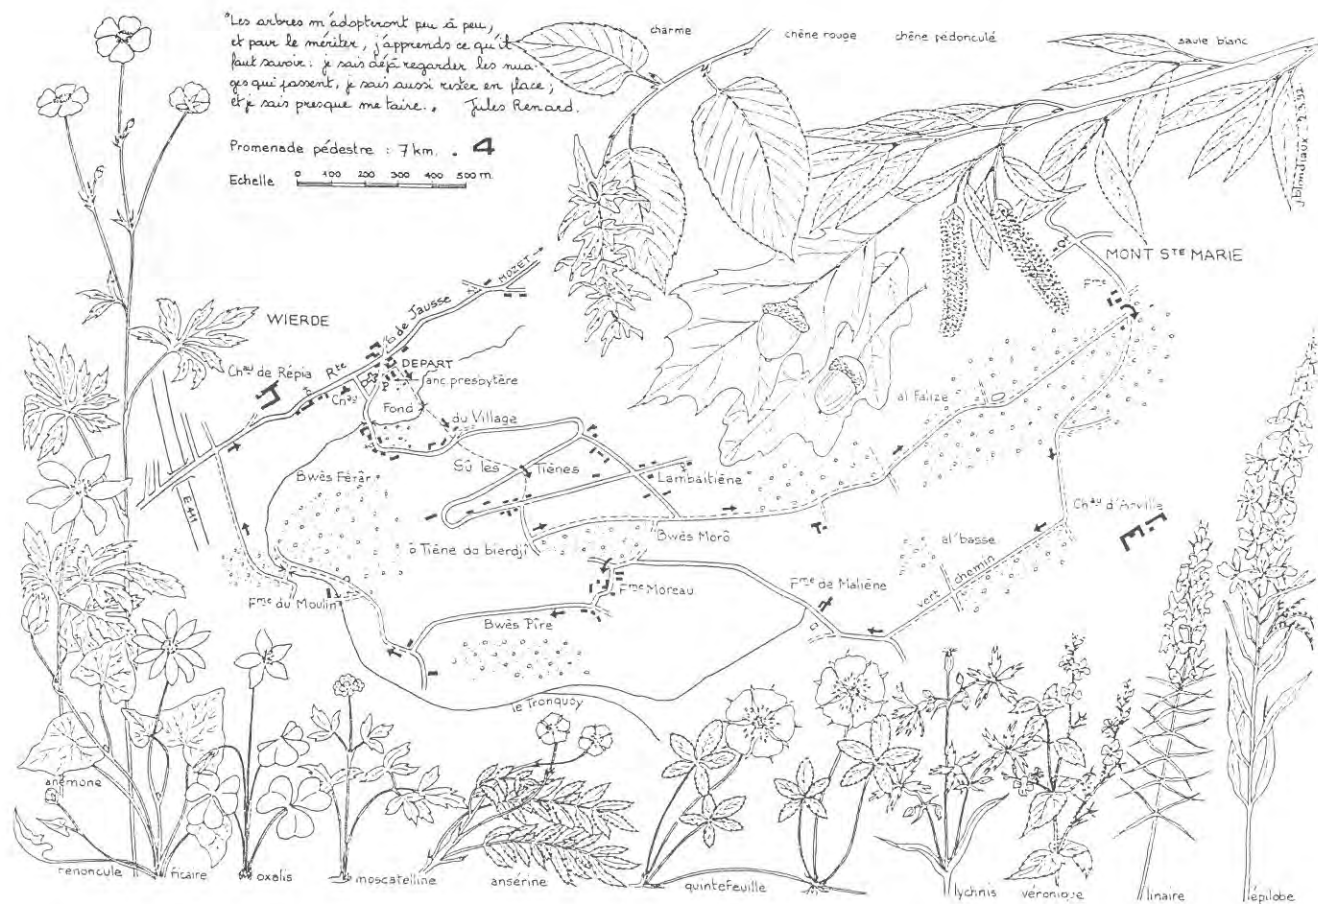 "Les arbres m'adopteront peu à peu,
et pour le mériter, j'apprends ce qu'il
faut savoir : je sais déjà regarder les nua-
ges qui passent, je sais aussi rester en place ;
et je sais presque me taire. „ Jules Renard.
Promenade pédestre : 7 km. . 4
Echelle 0 100 200 300 400 500 m.
charme
chêne rouge
chêne pédonculé
saule blanc
MONT STE MARIE
Fme
MOZET
Rte de Jausse
WIERDE
DEPART
Chau de Répia
anc. presbytère
P
Chau
Fond
du Village
al Falize
Sû les Tiènes
Lambaitiène
Bwès Fèrâr
E 411
Chau d'Arville
Bwès Morô
ô Tiène da bierdji
al'basse
vert chemin
Fme du Moulin
Fme Moreau
Fme de Maliène
Bwès Pîre
le Tronquoy
anémone
renoncule
ficaire
oxalis
moscatelline
ansérine
quintefeuille
lychnis
véronique
linaire
épilobe